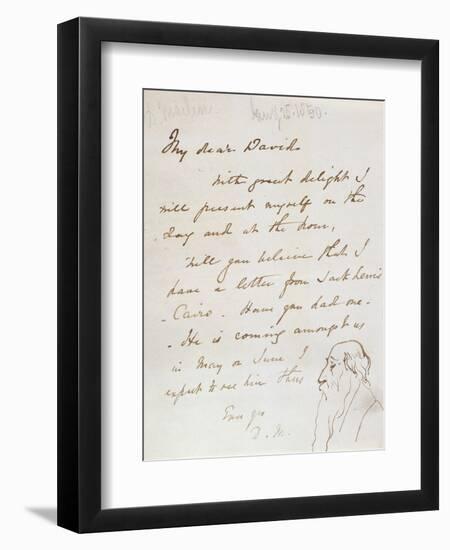 My dear David
With great delight I
will present myself on the
day and at the hour,
Will you believe that I
have a letter from Jack Lewis
- Cairo - Have you had one -
- He is coming amongst us
in May or June I
expect to see him thus
Ever yrs
D. M.